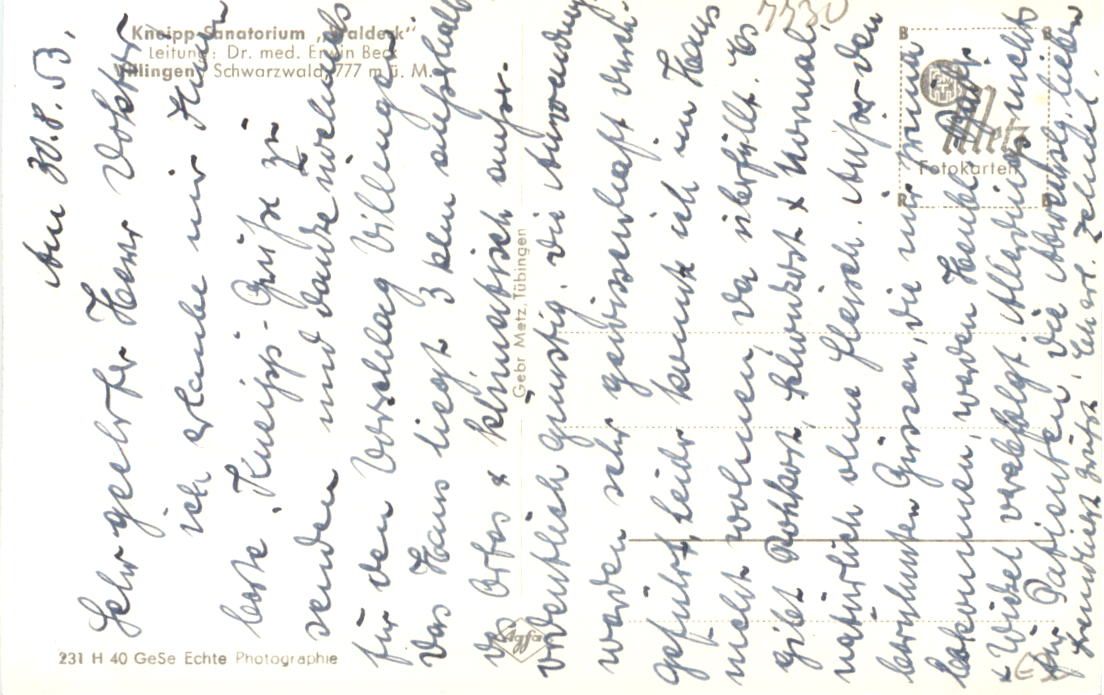 Kneipp-Sanatorium „Waldeck"
Leitung: Dr. med. Erwin Beck
Villingen Schwarzwald, 777 m ü. M.
Am 30.8.53.
Sehr geehrter Herr Doktor
ich erlaube mir Ihnen
beste Kneipp-Grüße zu
senden und danke nochmals
für den Vorschlag Villingen.
Das Haus liegt 3 klm außerhalb
des Ortes & klimatisch außer-
ordentlich günstig. Die Anwendungen
werden sehr gewissenhaft durch-
geführt, leider konnte ich im Haus
nicht wohnen, da überfüllt. Es
gibt Rohkost, Schonkost & Normal,
natürlich ohne Fleisch. Außer den
berühmten Güssen, die mir prima
bekommen, werden Heubl.
& Wickel verabfolgt. Allerdings nicht
für Patienten die Abwechslg. lieben
Freundliche Grüße
Gebr. Metz, Tübingen
Metz
Fotokarten
Agfa
231 H 40 GeSe Echte Photographie
7730